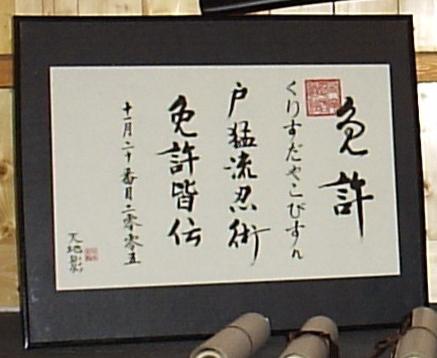 免許
くりすだやこびすん
戸猛流忍術
免許皆伝
十一月二十番月二零零五
天地